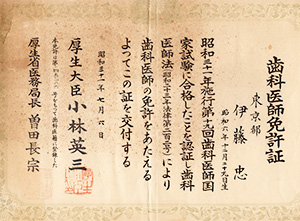 歯科医師免許証
東京都
伊藤忠
昭和六年十二月二十九日生
昭和三十一年施行第十九回歯科医師国
家試験に合格したことを認証し歯科
医師法(昭和二十三年法律第二百二号)により
歯科医師の免許をあたえる
よってこの証を交付する
昭和三十一年七月六日
厚生大臣小林英三
厚生省医務局長曽田長宗